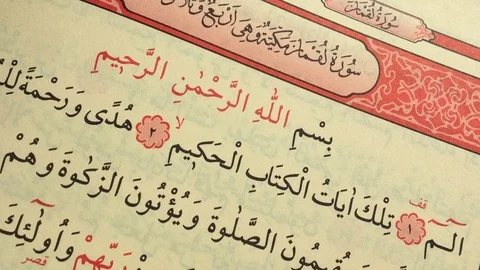 سُورَةُ لُقْمٰنَ
سُورَةُ لُقْمَانَ مَكِّيَّةٌ وَهِيَ اَرْبَعٌ وَثَلَاثُونَ
بِسْمِ اللّٰهِ الرَّحْمٰنِ الرَّحٖيمِ
الٓمٓ ۚ ﴿١﴾ قف تِلْكَ اٰيَاتُ الْكِتَابِ الْحَكٖيمِۙ ﴿٢﴾ هُدًى وَرَحْمَةً
يُقٖيمُونَ الصَّلٰوةَ وَيُؤْتُونَ الزَّكٰوةَ وَهُمْ
رَبِّهِمْ قصر وَاُو۬لٰٓئِكَ